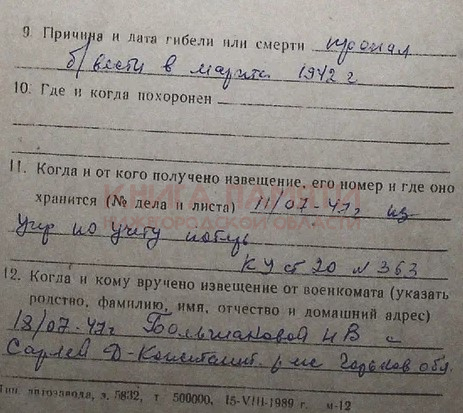 9. Причина и дата гибели или смерти пропал
б/вести в марте 1942 г
10. Где и когда похоронен
11. Когда и от кого получено извещение, его номер и где оно
КНИГА ПАМЯТИ
хранится (№ дела и листа) 11/07-47г из
НИЖЕГОРОДСКОЙ ОБЛАСТИ
упр по учету потерь
К У ст 20 № 363
12. Когда и кому вручено извещение от военкомата (указать
родство, фамилию, имя, отчество и домашний адрес)
18/07-47г Большаковой И В с
Сарлей Д-Константин. р-не Горьков обл.
Тип. автозавода, з. 5832, т 500000, 15-VIII-1989 г. м-12